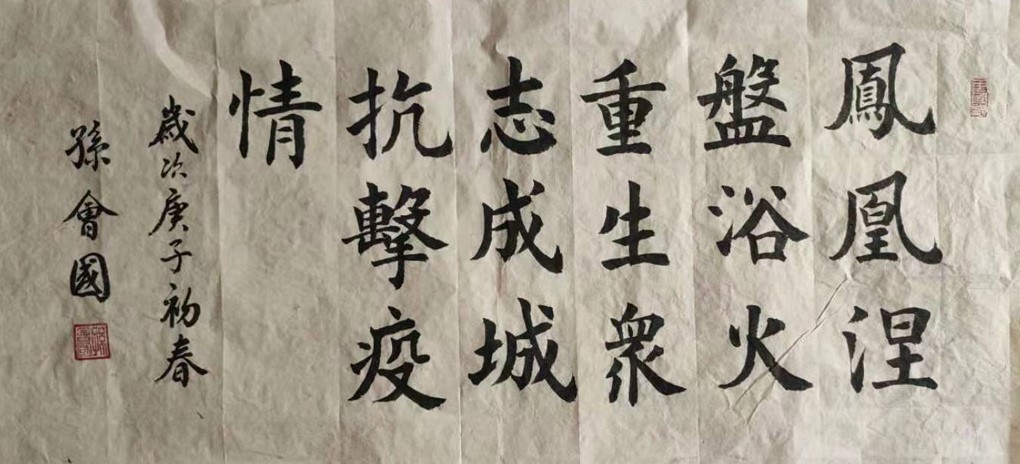 鳳凰涅
盤浴火
重生衆
志成城
抗擊疫
情
歲次庚子初春
孫會國